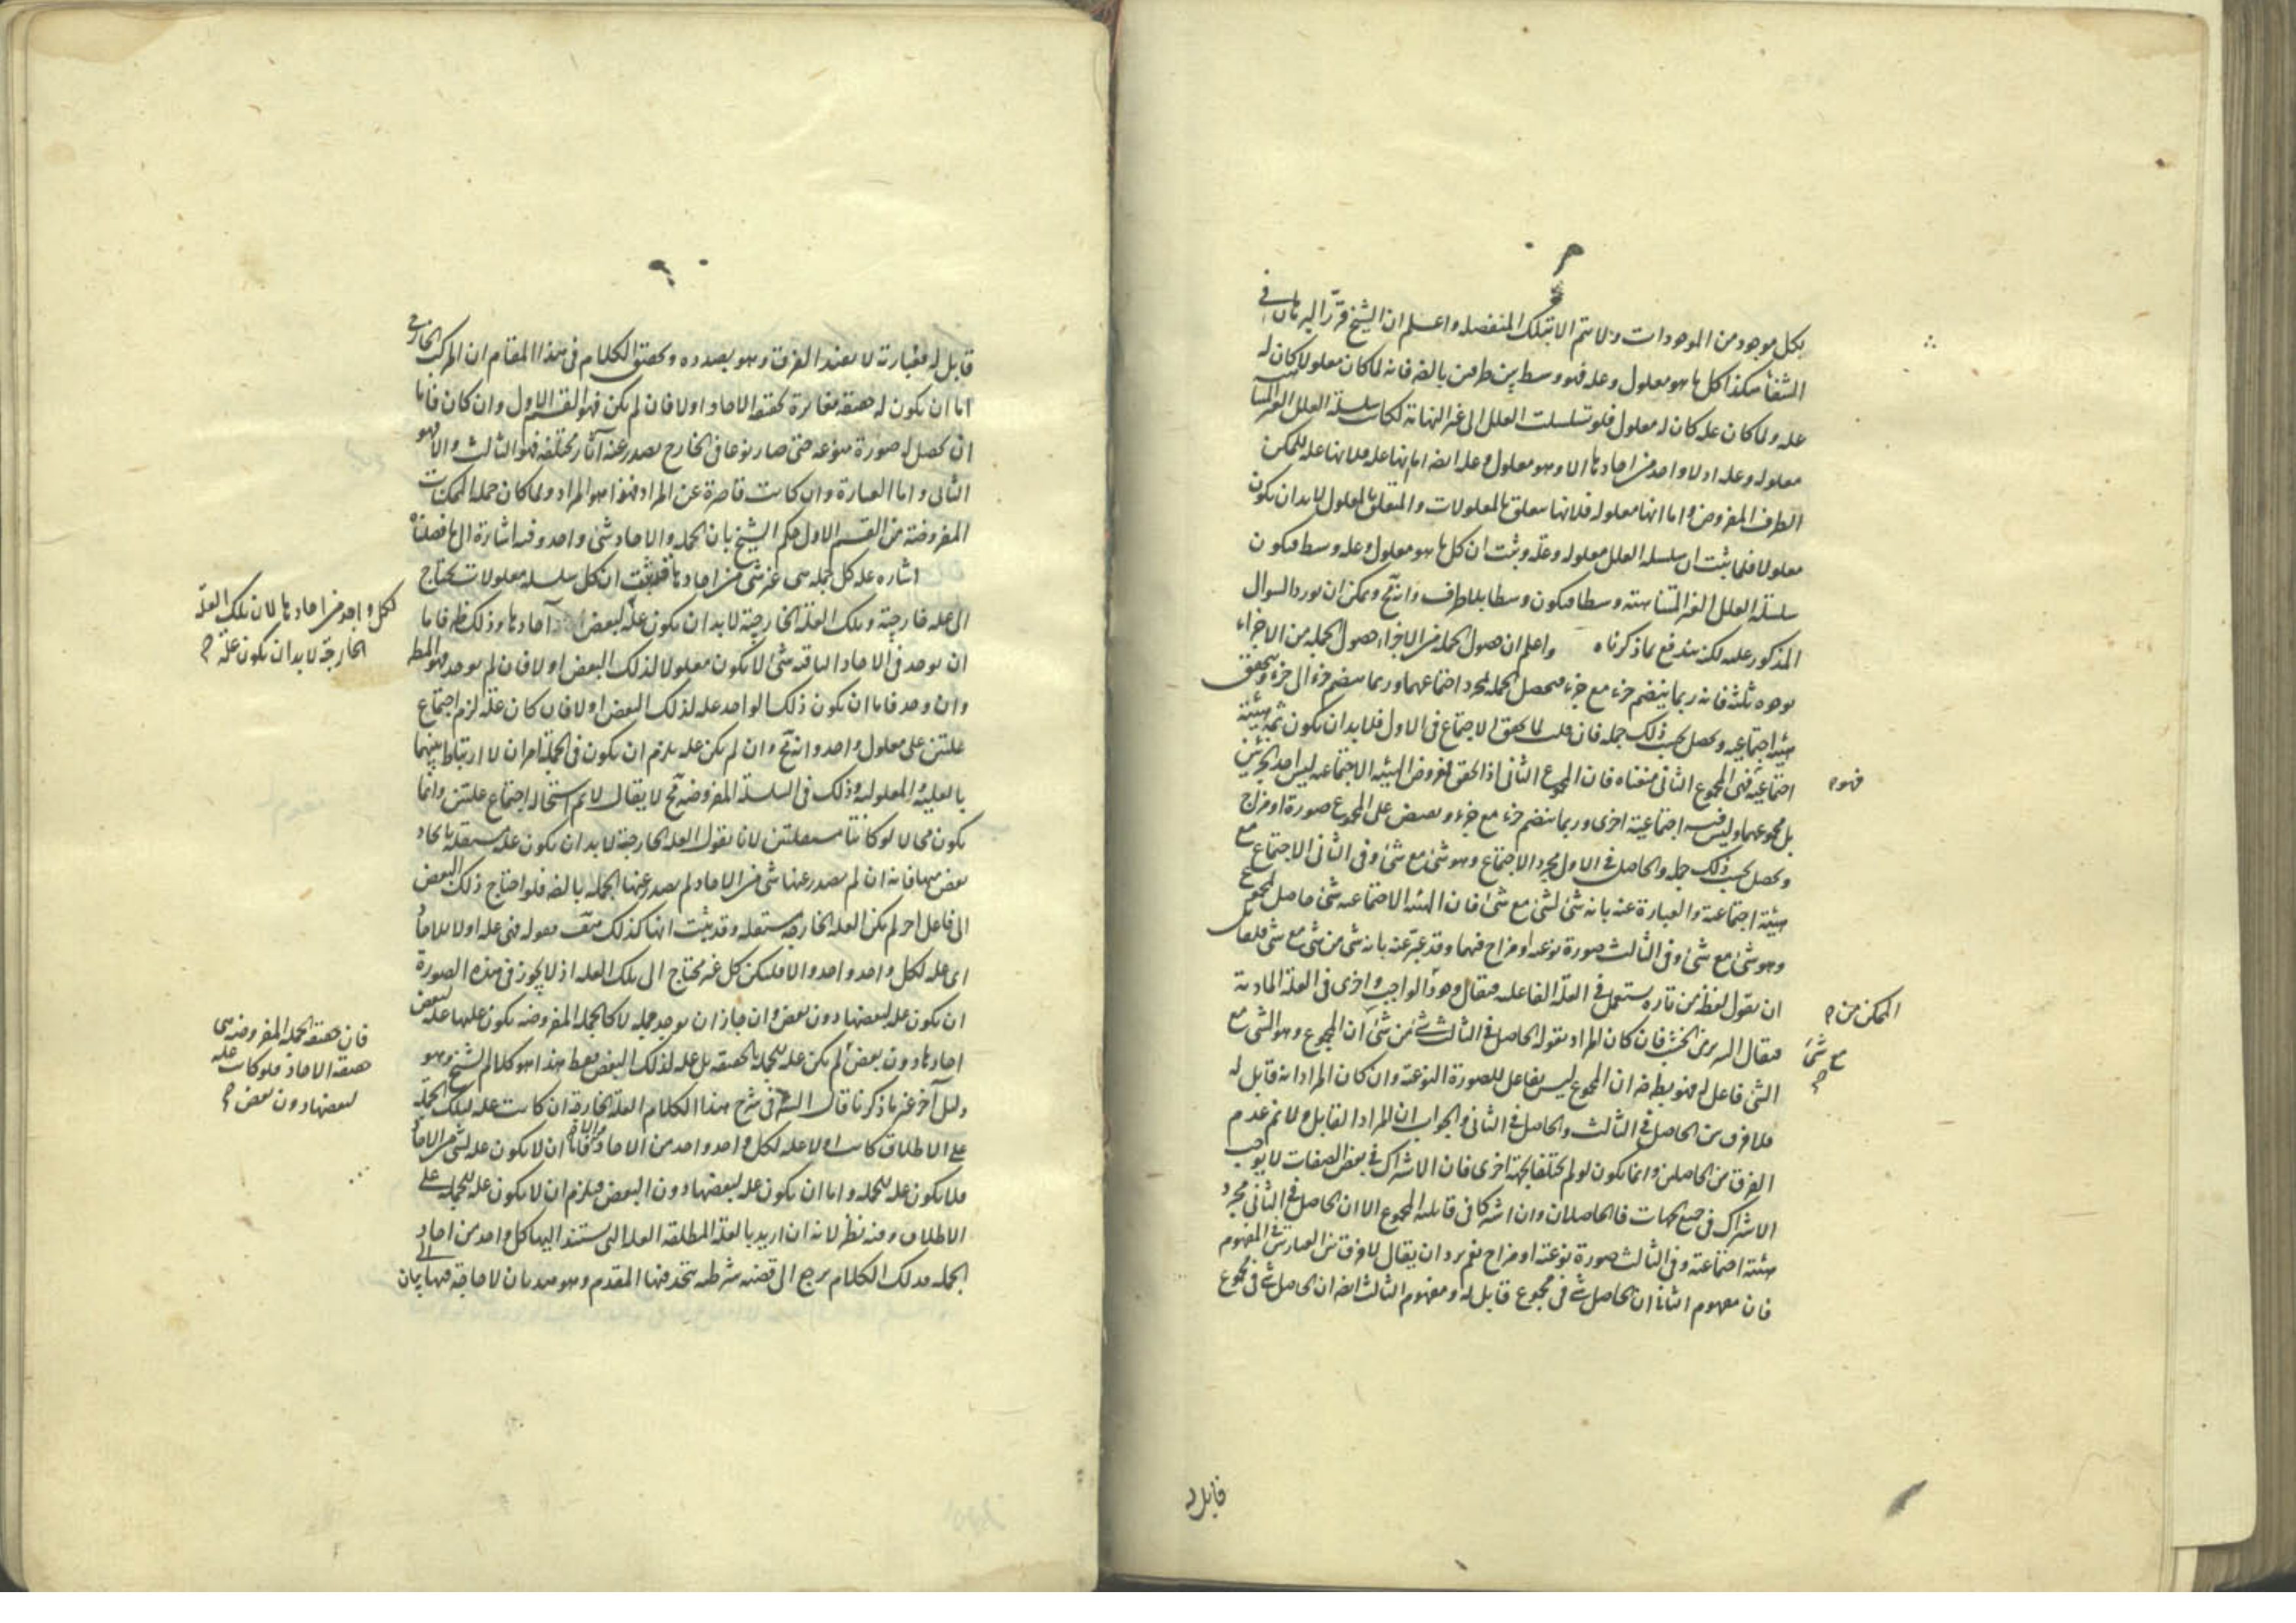 بكل موجود من الموجودات ولا يتم الا بتلك المنفصله واعلم ان الشيخ قرّر البرهان في
الشفا هكذا كل ما هو معلول وعله فهو وسط بين طرفين بالضه فانه لما كان معلولا كان له
عله ولما كان عله كان له معلول فلو تسلسلت العلل الى غير النهاية لكانت سلسلة العلل الغير المتناهيه
معلوله وعله اولا واحد من احادها الا وهو معلول وعله ايضا اما انها عله فلانها عله للممكن
الطرف المفروض واما انها معلوله فلانها متعلق بالمعلولات والمتعلق بالمعلول لا بد ان يكون
معلولا فلما ثبت ان سلسلة العلل معلوله وعله وثبت ان كل ما هو معلول وعله وسط فيكون
سلسلة العلل الغير المتناهيه وسطا فيكون وسطا بلا طرف وانه مح ويمكن ان يورد السوال
المذكور عليه لكنه مندفع بما ذكرناه واعلم ان حصول الجمله من الاجزاء حصول الجمله من الاجزاء
بوجوه ثلثه فانه ربما ينضم جزء مع جزء فيحصل الجمله بمجرد اجتماعهما وربما ينضم جزء الى جزء ويتحقق
هيئه اجتماعيه ويحصل بحسب ذلك جمله فان قلت لما تحقق الاجتماع في الاول فلا بد ان يكون ثمه هيئة
اجتماعية ففي المجموع الثاني فان المجموع الثاني اذا تحقق لعروض الهيئه الاجتماعيه ليس احد الجزئين
فهو م
بل مجموعهما وليس فيه اجتماعية اخرى وربما ينضم جزء مع جزء ويفيض على المجموع صورة او مزاج
ويحصل بحسب ذلك جمله والحاصل في الاول مجرد الاجتماع وهو شئ مع شئ وفي الثاني الاجتماع مع
هيئة اجتماعية والعبارة عنه بانه شئ لشئ مع شئ فان الهيئه الاجتماعيه شئ حاصل لمجموع
وهو شئ مع شئ وفي الثالث صورة نوعيه او مزاج فيهما وقد عبّر عنه بانه شئ من شئ مع شئ فلقائل
ان يقول لفظ من تارة يستعمل في العلّة الفاعليه فيقال وجود الممكن من م الواجب واخرى في العلة المادية
فيقال السرير من الخشب فان كان المراد بقوله الحاصل في الثالث شئ من شئ مع شئ م ان المجموع وهو الشئ مع
الشئ فاعل له فهو بط فان المجموع ليس بفاعل للصورة النوعية وان كان المراد انه قابل له
فلا فرق بين الحاصل في الثالث والحاصل في الثاني والجواب ان المراد القابل ولا نم عدم
الفرق بين الحاصلين وانما يكون لو لم يختلفا بجهة اخرى فان الاشتراك في بعض الصفات لا يوجب
الاشتراك في جميع الجهات فالحاصلان وان اشتركا في قابليه المجموع الا ان الحاصل في الثاني مجرد
هيئة اجتماعية وفي الثالث صورة نوعية او مزاج نعم يرد ان يقال لا فرق بين العبارتين في المفهوم
فان مفهوم الثاني ان الحاصل شئ في مجموع قابل له ومفهوم الثالث ايضا ان الحاصل شئ في مجموع
قابل له
قابل له فعبارته لا يفيد الفرق وهو بصدده وتحقيق الكلام في هذا المقام ان المركب الخارجي
اما ان يكون له حقيقه مغايرة لحقيقه الاحاد اولا فان لم يكن فهو القسم الاول وان كان فاما
ان يحصل له صورة منوعه حتى صار نوعا في الخارج يصدر عنه آثار مختلفه فهو الثالث والا فهو
الثاني واما العبارة وان كانت قاصرة عن المراد فهذا هو المراد ولما كان جمله الممكنات
المفروضة من القسم الاول حكم الشيخ بان الجمله والاحاد شئ واحد وفيه اشارة الى ما فصلناه
اشاره عله كل جمله هي غير شئ من احادها قد ثبت ان كل سلسله معلولات يحتاج
الى عله خارجة وتلك العله الخارجية لا بد ان يكون علّة لبعض آحادها وذلك ظ فاما
لكل واحد من احادها لان تلك العله
الخارجة لا بد ان يكون علة م
ان يوجد في الاحاد الباقيه شئ لا يكون معلولا لذلك البعض اولا فان لم يوجد فهو المط
وان وجد فاما ان يكون ذلك الواحد عله لذلك البعض اولا فان كان علة لزم اجتماع
علتين على معلول واحد وانه مح وان لم يكن عله يلزم ان يكون في الجملة امران لا ارتباط بينهما
بالعليه والمعلوليه وذلك في السلسلة المفروضه مح لا يقال لا نم استحاله اجتماع علتين وانما
يكون محالا لو كانتا مستقلتين لانا نقول العله الخارجة لا بد ان يكون عله مستقله بايجاد
بعض منها فانه ان لم يصدر عنها شئ من الاحاد لم يصدر عنها الجمله بالضه فلو احتاج ذلك البعض
الى فاعل اخر لم يكن العله الخارجيه مستقله وقد ثبت انها كذلك هف قوله فهي عله اولا للاحاد
اى عله لكل واحد واحد والا فليكن كل غير محتاج الى تلك العله اذ لا يجوز في هذه الصورة
ان يكون عله لبعضها دون بعض وان جاز ان يوجد جمله لا كالجمله المفروضه يكون علتها عله لبعض
فان حقيقه الجمله المفروضه هي
حقيقه الاحاد فلو كانت عله
لبعضها دون بعض م
احادها دون بعض لم يكن عله للجمله بالحقيقه بل عله لذلك البعض فقط هذا هو كلام الشيخ وهو
دليل آخر غير ما ذكرنا قال الشه في شرح هذا الكلام العله الخارجة ان كانت عله لتلك الجملة
على الاطلاق كانت اولا عله لكل واحد واحد من الاحاد والا فاما ان لا يكون عله لشئ من الاحاد
فلا يكون عله للجمله واما ان يكون عله لبعضها دون البعض فيلزم ان لا يكون عله للجمله على
الاطلاق وفيه نظر لانه ان اريد بالعله المطلقه العله التى يستند اليها كل واحد من احاد
الجمله فذلك الكلام يرجع الى قضيه شرطيه يتحد فيها المقدم وهو هذيان لا حاجة فيها الى بيان